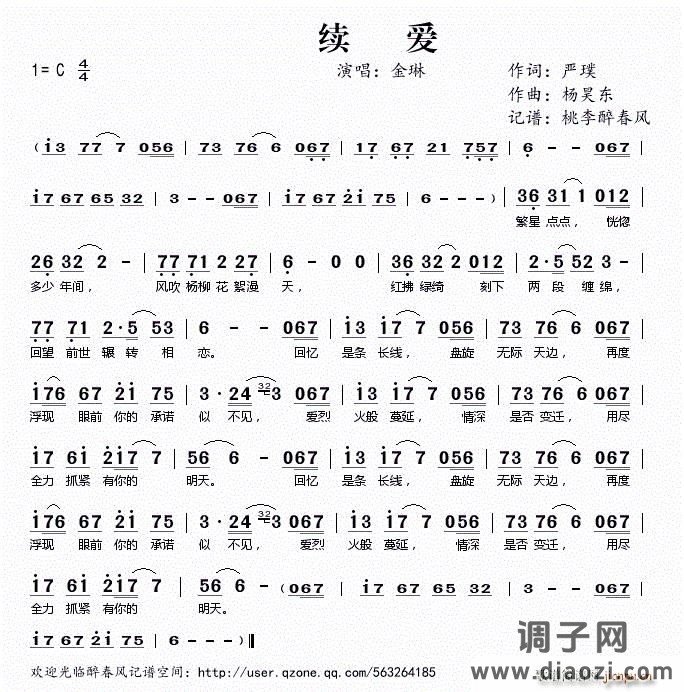 续 爱
1= C 4/4 演唱：金琳 作词：严璞
作曲：杨昊东
记谱：桃李醉春风
（i3 77 7 056 | 73 76 6 067 | 17 67 21 757 | 6 - - 067 |
i7 67 65 32 | 3 - - 067 | i7 67 2i 75 | 6 - - -） | 36 31 1 012
繁星 点点， 恍惚
26 32 2 - | 77 71 2 27 | 6 - 0 0 | 36 32 2 012 | 2·5 52 3 -
多少 年间， 风吹 杨柳 花 絮漫 天， 红拂 绿绮 刻下 两 段 缠绵，
77 71 2·5 53 | 6 - - 067 | i3 i7 7 056 | 73 76 6 067 |
回望 前世 辗 转 相 恋。 回忆 是条 长线， 盘旋 无际 天边， 再度
i76 67 2i 75 | 3·24 323 067 | i3 i7 7 056 | 73 76 6 067 |
浮现 眼前 你的 承诺 似 不见， 爱烈 火般 蔓延， 情深 是否 变迁， 用尽
i7 6i 2i7 7 | 56 6 - 067 | i3 i7 7 056 | 73 76 6 067 |
全力 抓紧 有你的 明天。 回忆 是条 长线， 盘旋 无际 天边， 再度
i76 67 2i 75 | 3·24 323 067 | i3 i7 7 056 | 73 76 6 067 |
浮现 眼前 你的 承诺 似 不见， 爱烈 火般 蔓延， 情深 是否 变迁， 用尽
i7 6i 2i7 7 | 56 6 - （067 | i7 67 65 32 | 3 - - 067 |
全力 抓紧 有你的 明天。
i7 67 2i 75 | 6 - - -）‖
欢迎光临醉春风记谱空间：http://user.qzone.qq.com/563264185
调子网
www.diaozi.com